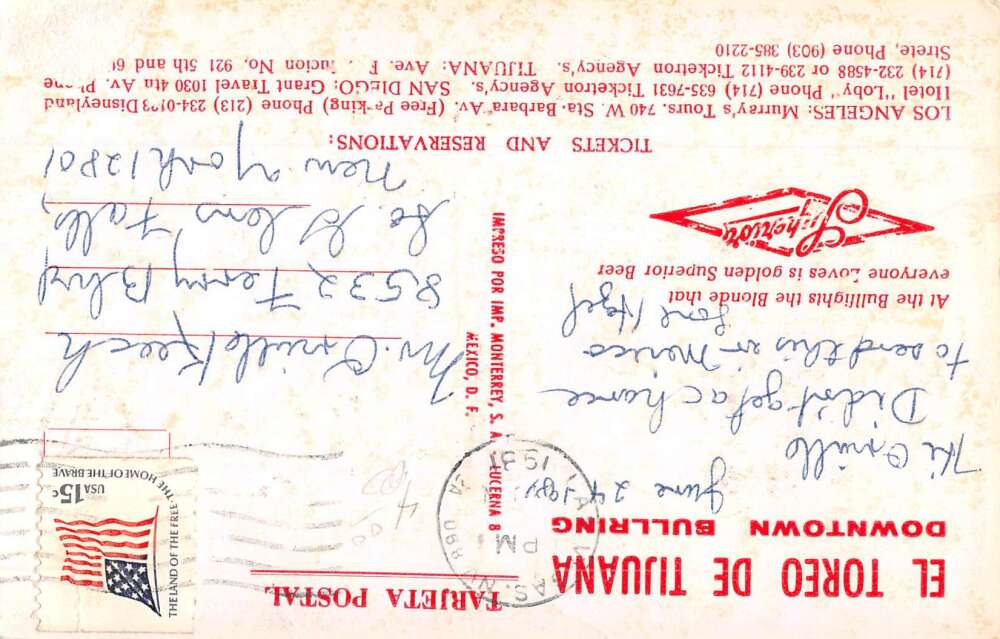 EL TOREO DE TIJUANA
DOWNTOWN BULLRING
June 24 1981
Hi Orville
Didn't get a chance
to send this in Mexico
Love Hazel
At the Bullfights the Blonde that
everyone Loves is golden Superior Beer
Superior
TARJETA POSTAL
THE LAND OF THE FREE· THE HOME OF THE BRAVE
USA 15c
PM
1981
400
IMPRESO POR IMP. MONTERREY, S. A. LUCERNA 8
MEXICO, D. F.
Mr. Orville Keech
8532 Ferry Blvd
So. Glens Falls,
New York 12801
TICKETS AND RESERVATIONS:
LOS ANGELES: Murray's Tours. 740 W. Sta. Barbara. Av. (Free Parking) Phone (213) 234-0123 Disneyland
Hotel "Loby" Phone (714) 635-7631 Ticketron Agency's. SAN DIEGO: Grant Travel 1030 4th Av.
(714) 232-4588 or 239-4112 Ticketron Agency's. TIJUANA: Ave. No. 921 5th and
Strete, Phone (903) 385-2210